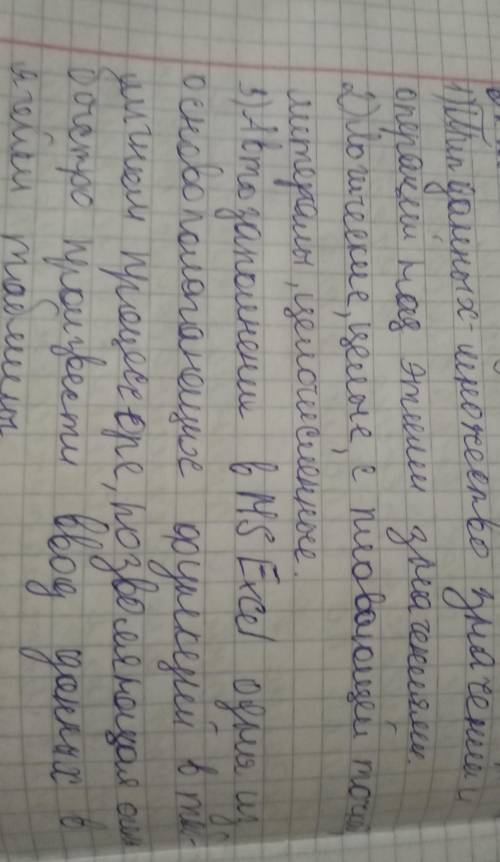 1) Тип данных - множество значений и
операции над этими значениями.
2) Логические, целые, с плавающей точкой
литералы, целочисленные.
3) Автозаполнении в MS Excel одна из
основополагающие функций в таб-
процессоре, позволяющая
быстро произвести ввод данных в
ячейки таблицы